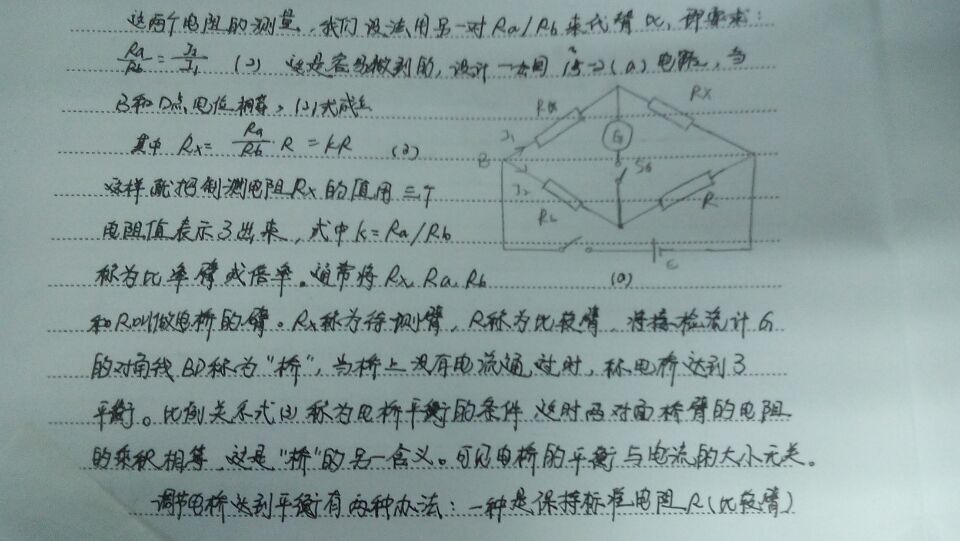 这两个电阻的测量,我们设法用另一对Ra/Rb来代替比,即要求:
Ra/Rb = I2/I1 (2) 这是容易做到的,设计一如图15-2(a)电路,当
B和D点电位相等,(2)式成立
其中 Rx = Ra/Rb · R = KR (3)
这样就把待测电阻Rx的值用三个
电阻值表示了出来,式中K=Ra/Rb
称为比率臂或倍率。通常将Rx Ra Rb
和R叫做电桥的臂。Rx称为待测臂,R称为比较臂,将接检流计G
的对角线BD称为"桥",当桥上没有电流通过时,称电桥达到了
平衡。比例关系式(3)称为电桥平衡的条件 这时两对面桥臂的电阻
的乘积相等,这是"桥"的另一含义。可见电桥的平衡与电流的大小无关。
调节电桥达到平衡有两种办法:一种是保持标准电阻R(比较臂)
Ra
Rx
I1
G
B
SG
I2
Rb
R
E
(a)